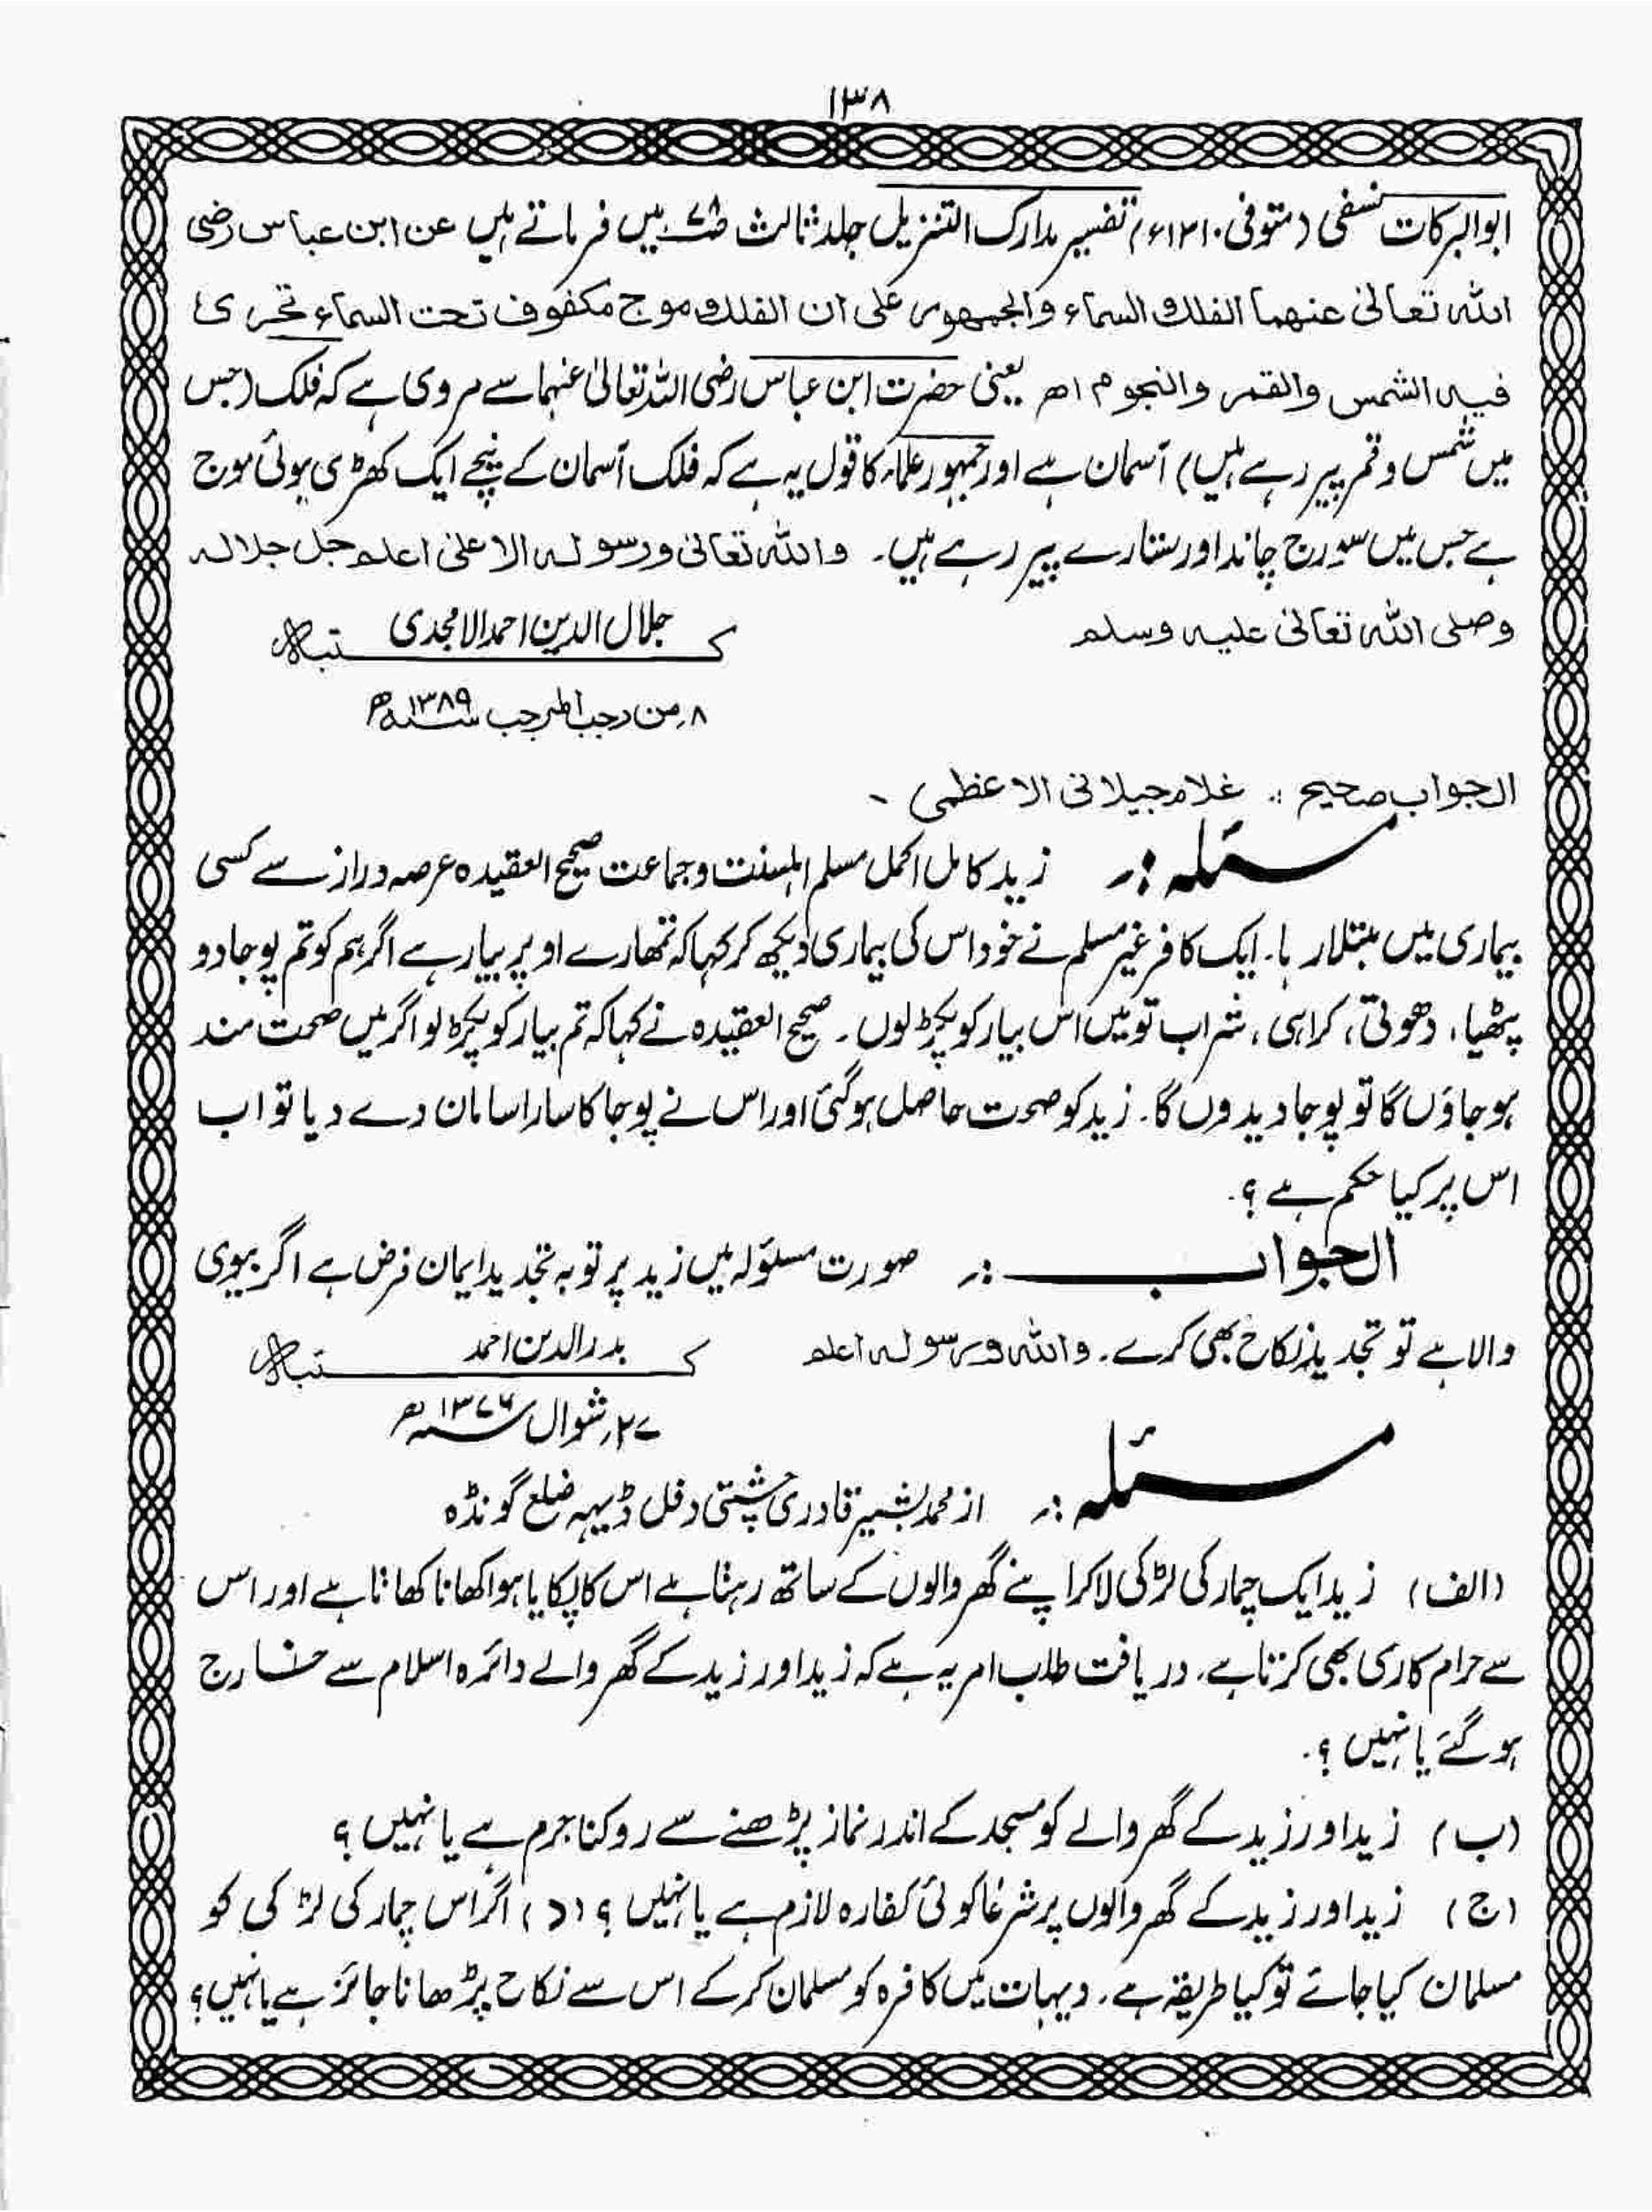 ۱۳۸
ابوالبرکات نسفی (متوفی ۱۳۱۰ء) تفسیر مدارک التنزیل جلد ثالث ص۷۸ میں فرماتے ہیں عن ابن عباس رضی
اللہ تعالیٰ عنھما الفلک السماء والجمھور علی ان الفلک موج مکفوف تحت السماء تجری
فیہ الشمس والقمر والنجوم اھ یعنی حضرت ابن عباس رضی اللہ تعالیٰ عنہما سے مروی ہے کہ فلک (جس
میں شمس وقمر پیر رہے ہیں) آسمان ہے اور جمہور علماء کا قول یہ ہے کہ فلک آسمان کے نیچے ایک کھڑی ہوئی موج
ہے جس میں سورج چاند اور ستارے پیر رہے ہیں۔ واللہ تعالیٰ ورسولہ الاعلیٰ اعلم جل جلالہ
وصلی اللہ تعالیٰ علیہ وسلم
کتبہ جلال الدین احمد الامجدی
۸؍من رجب المرجب سنہ ۱۳۸۹ھ
الجواب صحیح :۔ غلام جیلانی الاعظمی ۔
مسئلہ :۔ زید کامل اکمل مسلم اہلسنت وجماعت صحیح العقیدہ عرصہ دراز سے کسی
بیماری میں مبتلا رہا۔ ایک کافر غیر مسلم نے خود اس کی بیماری دیکھ کر کہا کہ تمھارے اوپر بیار ہے اگر ہم کو تم پوجا دو
پٹھیا، دھوتی، کراہی، شراب تو میں اس بیار کو پکڑ لوں۔ صحیح العقیدہ نے کہا کہ تم بیار کو پکڑ لو اگر میں صحت مند
ہو جاؤں گا تو پوجا دیدوں گا۔ زید کو صحت حاصل ہو گئی اور اس نے پوجا کا سارا سامان دے دیا تو اب
اس پر کیا حکم ہے ؟.
الجواب :۔ صورت مسئولہ میں زید پر توبہ تجدید ایمان فرض ہے اگر بیوی
والا ہے تو تجدید نکاح بھی کرے۔ واللہ ورسولہ اعلم
کتبہ بدر الدین احمد
۲۷؍شوال سنہ ۱۳۷۶ھ
مسئلہ :۔ از محمد بشیر قادری چشتی دفل ڈیہہ ضلع گونڈہ
(الف) زید ایک چمار کی لڑکی لاکر اپنے گھر والوں کے ساتھ رہتا ہے اس کا پکایا ہوا کھانا کھاتا ہے اور اس
سے حرام کاری بھی کرتا ہے۔ دریافت طلب امر یہ ہے کہ زید اور زید کے گھر والے دائرہ اسلام سے خارج
ہو گئے یا نہیں ؟.
(ب) زید اور زید کے گھر والے کو مسجد کے اندر نماز پڑھنے سے روکنا جرم ہے یا نہیں ؟
(ج) زید اور زید کے گھر والوں پر شرعًا کوئی کفارہ لازم ہے یا نہیں ؟ (د) اگر اس چمار کی لڑکی کو
مسلمان کیا جائے تو کیا طریقہ ہے۔ دیہات میں کافرہ کو مسلمان کر کے اس سے نکاح پڑھانا جائز ہے یا نہیں؟